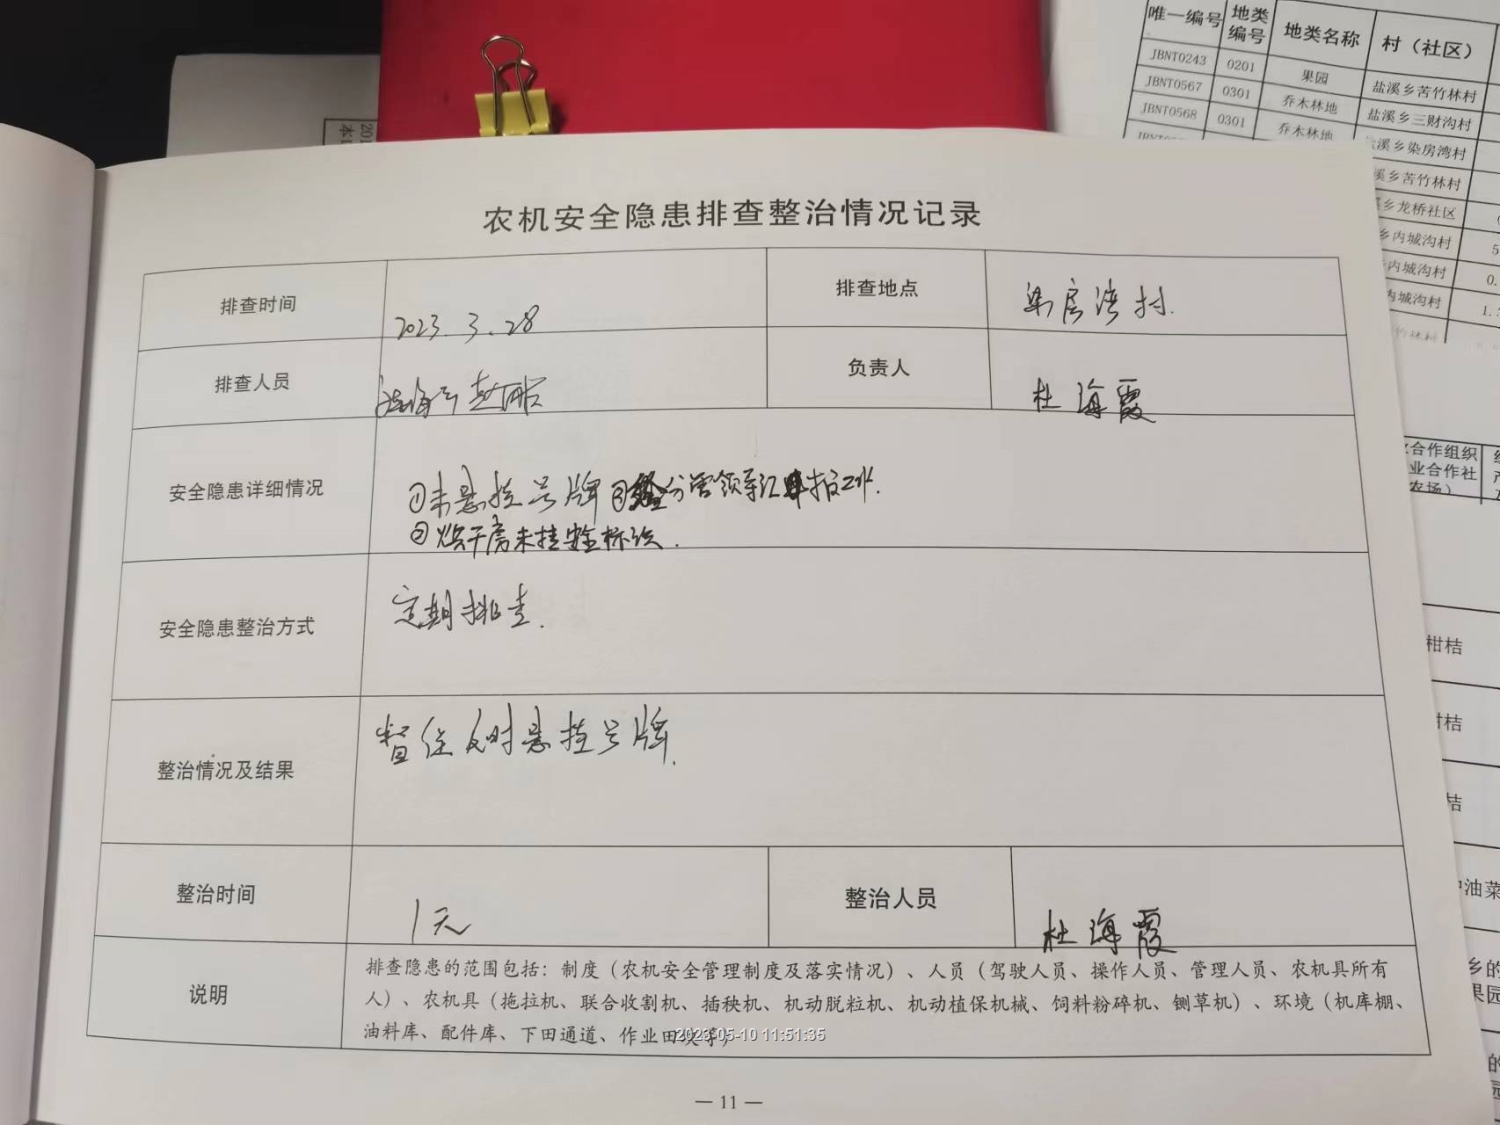 唯一编号 地类编号 地类名称 村（社区）
JBNT0243 0201 果园 盐溪乡苦竹林村
JBNT0567 0301 乔木林地 盐溪乡三财沟村
JBNT0568 0301 乔木林地 溪乡染房湾村
溪乡苦竹林村
乡龙桥社区
乡内城沟村 5
内城沟村 0.
内城沟村 1.
农机安全隐患排查整治情况记录
排查时间 2023.3.28 排查地点 染房湾村.
排查人员 负责人 杜海霞
安全隐患详细情况 ①未悬挂号牌 ③ 分管领导汇报工作.
②烘干房未挂安全标识.
安全隐患整治方式 定期排查.
整治情况及结果 督促及时悬挂号牌.
整治时间 1天 整治人员 杜海霞
说明 排查隐患的范围包括：制度（农机安全管理制度及落实情况）、人员（驾驶人员、操作人员、管理人员、农机具所有
人）、农机具（拖拉机、联合收割机、插秧机、机动脱粒机、机动植保机械、饲料粉碎机、铡草机）、环境（机库棚、
油料库、配件库、下田通道、作业田块等）
2023-05-10 11:51:35
— 11 —
合作组织
业合作社
农场）
柑桔
柑桔
桔
油菜
乡的
果园
的
园